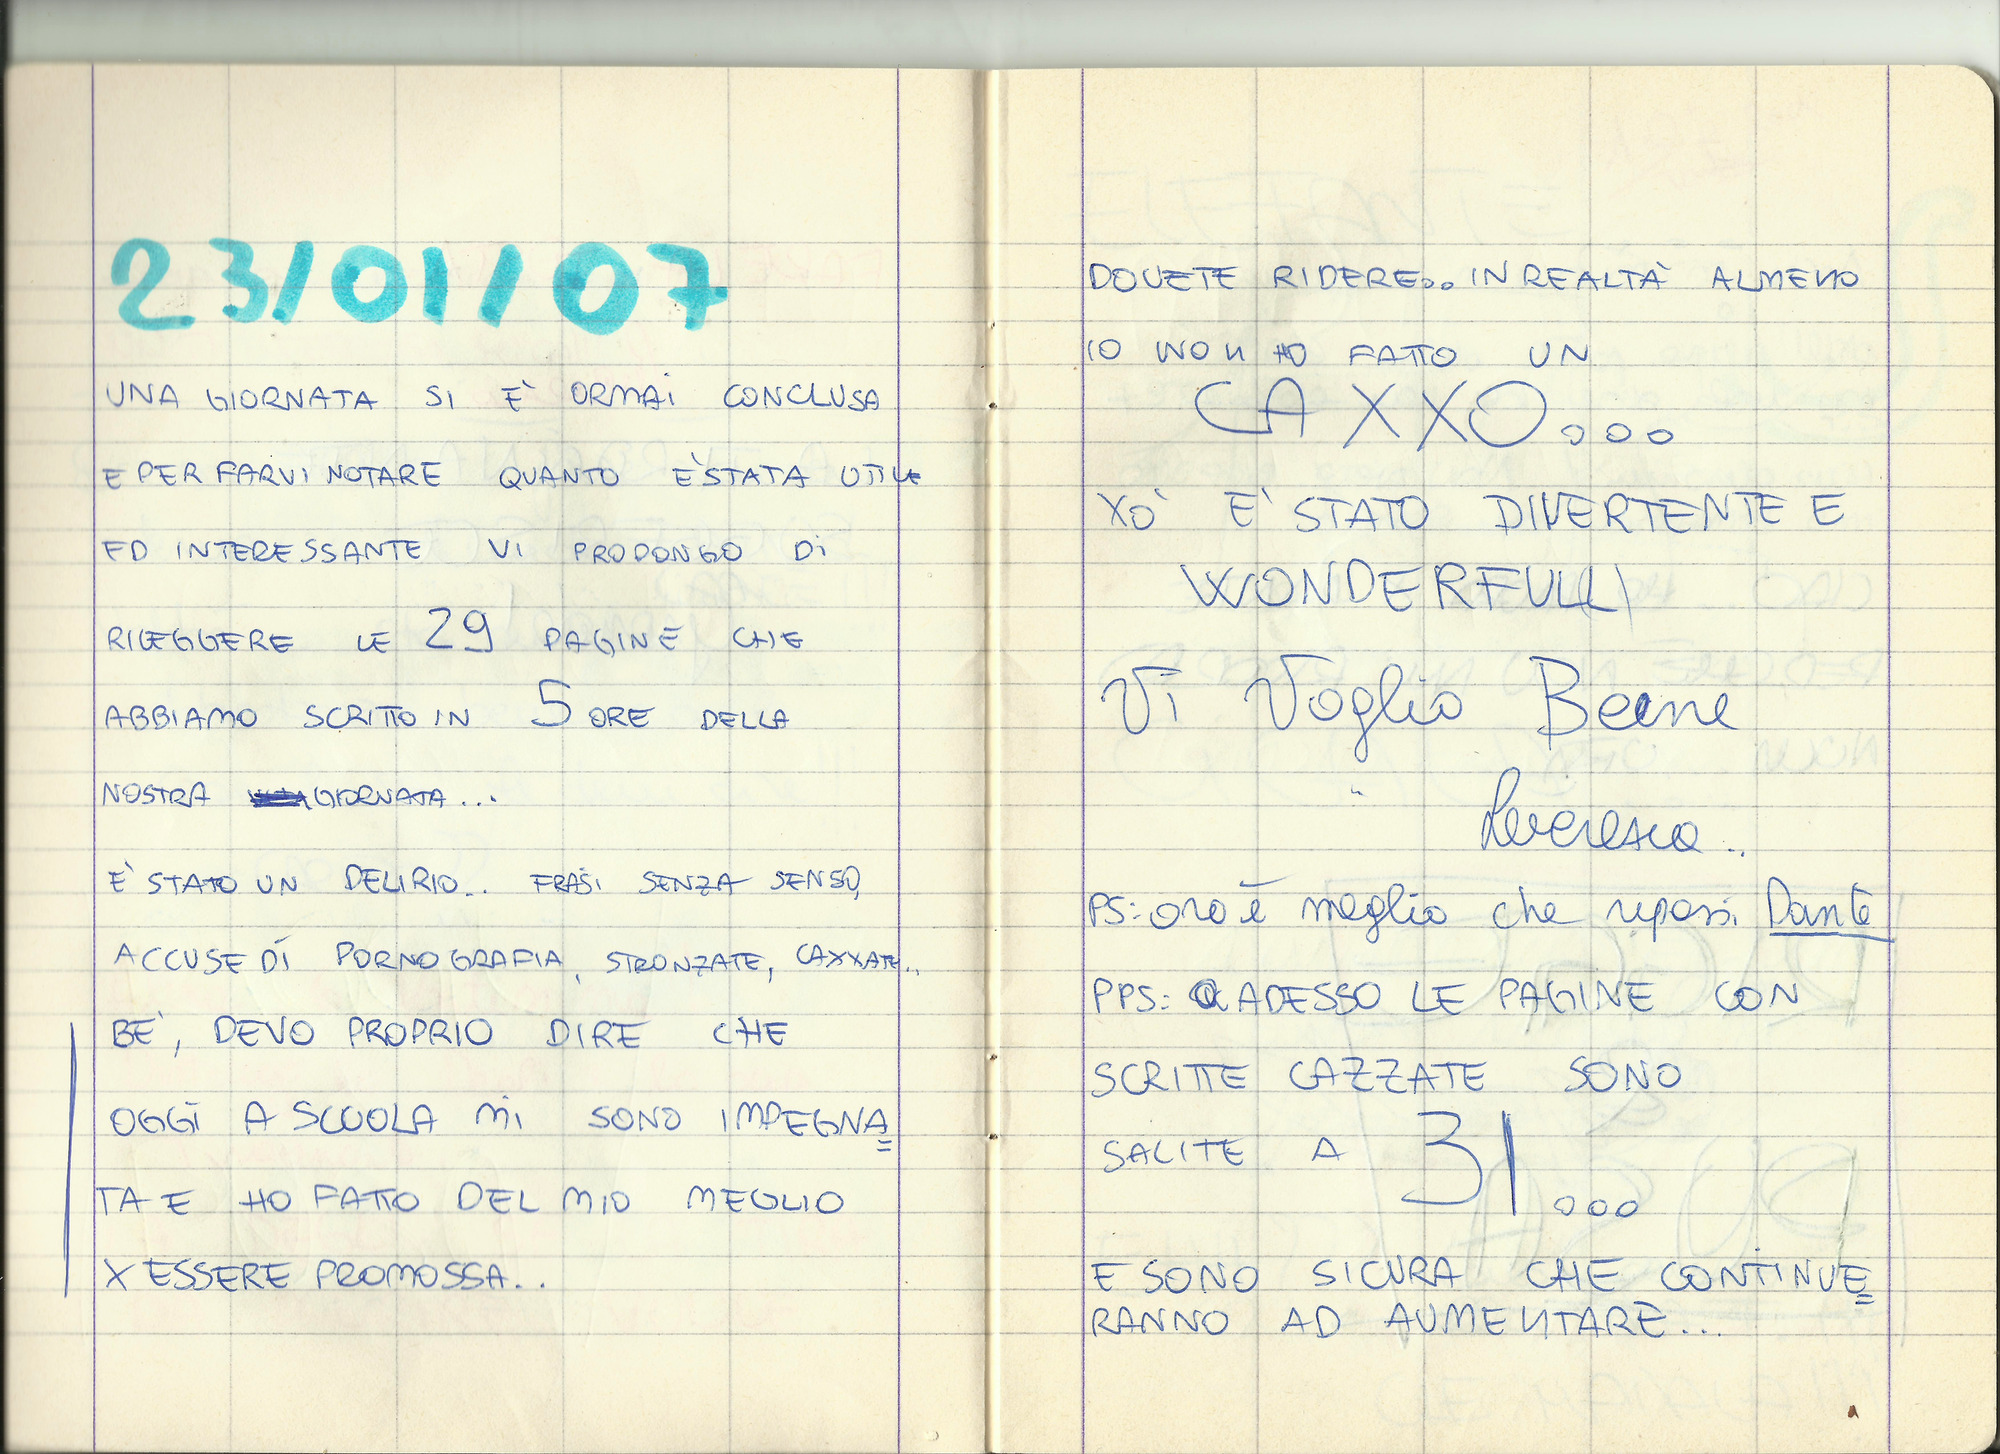 23/01/07
UNA GIORNATA SI È ORMAI CONCLUSA
E PER FARVI NOTARE QUANTO È STATA UTILE
ED INTERESSANTE VI PROPONGO DI
RILEGGERE LE 29 PAGINE CHE
ABBIAMO SCRITTO IN 5 ORE DELLA
NOSTRA GIORNATA...
È STATO UN DELIRIO.. FRASI SENZA SENSO,
ACCUSE DI PORNOGRAFIA, STRONZATE, CAXXATE..
BE', DEVO PROPRIO DIRE CHE
OGGI A SCUOLA MI SONO IMPEGNA=
TA E HO FATTO DEL MIO MEGLIO
X ESSERE PROMOSSA..
DOVETE RIDERE... IN REALTÀ ALMENO
IO NON HO FATTO UN
CAXXO...
XÒ È STATO DIVERTENTE E
WONDERFULL
Vi Voglio Beene
PS: ora è meglio che ripassi Dante
PPS: ADESSO LE PAGINE CON
SCRITTE CAZZATE SONO
SALITE A 31...
E SONO SICURA CHE CONTINUE=
RANNO AD AUMENTARE...